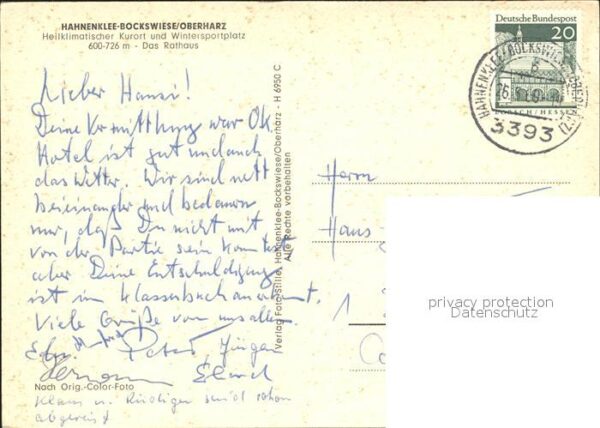 HAHNENKLEE-BOCKSWIESE/OBERHARZ
Heilklimatischer Kurort und Wintersportplatz
600-726 m - Das Rathaus
Lieber Hansi!
Deine Vermittlung war OK.
Hotel ist gut und auch
das Wetter. Wir sind nett
beieinander und bedauern
nur, daß Du nicht mit
von der Partie sein konntest
aber Deine Entschuldigung
ist im Klassenbuch anerkannt.
Viele Grüße von uns allen.
Peter Jürgen
Hermann
Nach Orig.-Color-Foto
Klaus u. Rüdiger sind schon
abgereist
Verlag Foto-Stille, Hahnenklee-Bockswiese/Oberharz - H 6950 C
Alle Rechte vorbehalten
Deutsche Bundespost
20
LORSCH/HESSEN
HAHNENKLEE-BOCKSWIESE
3393
Herrn
Hans
1
privacy protection
Datenschutz